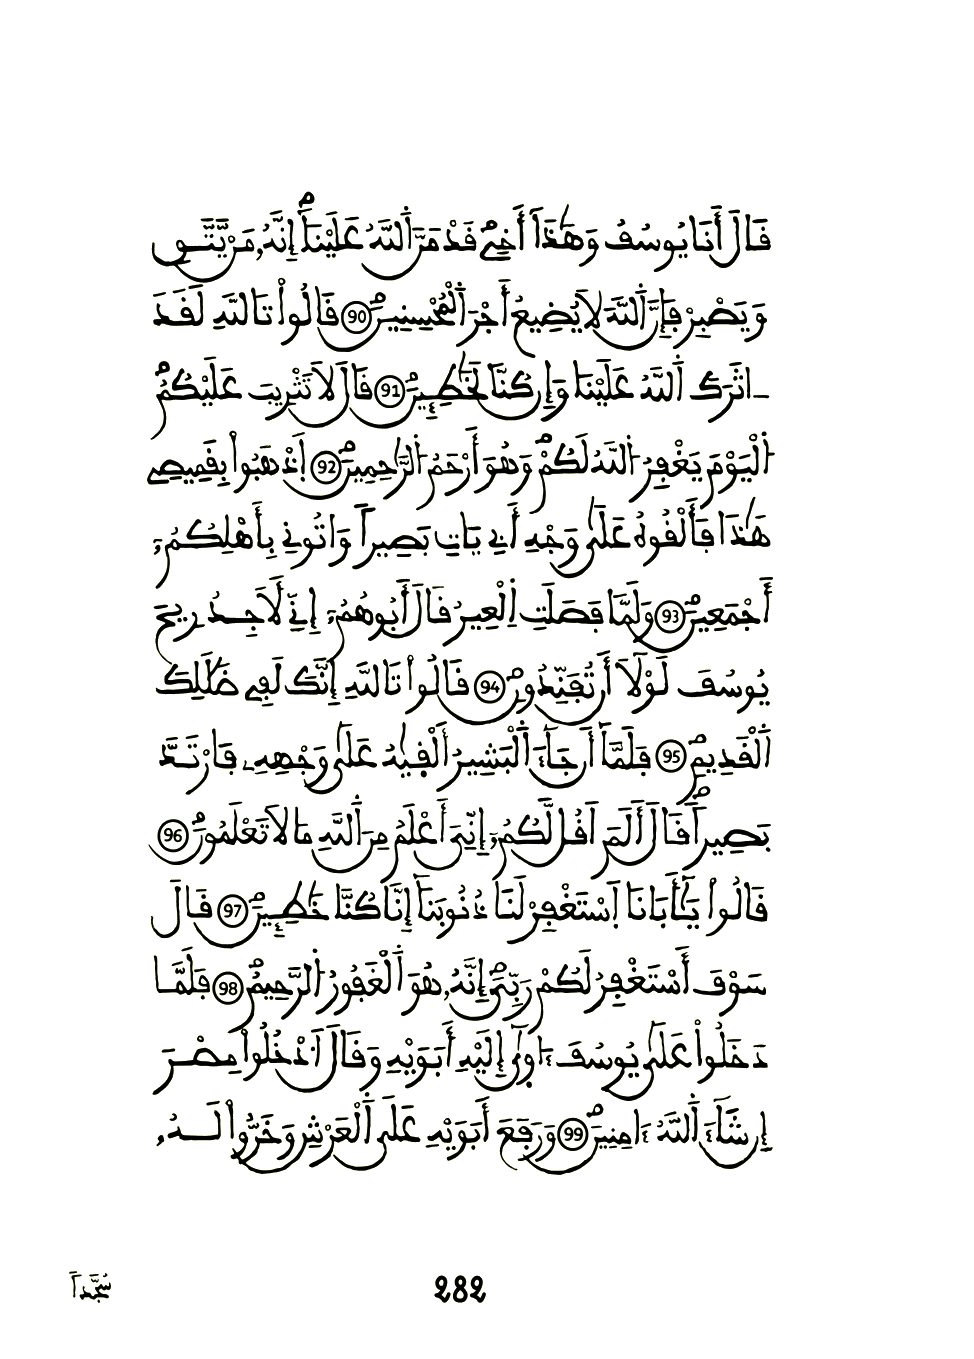 قَالَ أَنَا يُوسُفُ وَهَٰذَا أَخِي قَدْ مَنَّ اَ۬للَّهُ عَلَيْنَا إِنَّهُۥ مَنْ يَّتَّقِ
وَيَصْبِرْ فَإِنَّ اَ۬للَّهَ لَا يُضِيعُ أَجْرَ اَ۬لْمُحْسِنِينَ 90 قَالُوا۟ تَاللَّهِ لَقَدَ
ـ اثَرَكَ اَ۬للَّهُ عَلَيْنَا وَإِن كُنَّا لَخَٰطِـِٕينَ 91 قَالَ لَا تَثْرِيبَ عَلَيْكُمُ
اُ۬لْيَوْمَ يَغْفِرُ اُ۬للَّهُ لَكُمْ وَهُوَ أَرْحَمُ اُ۬لرَّٰحِمِينَ 92 اَ۪ذْهَبُوا۟ بِقَمِيصِے
هَٰذَا فَأَلْقُوهُ عَلَىٰ وَجْهِ أَبِي يَاتِ بَصِيراً وَاتُونِي بِأَهْلِكُمُۥٓ
أَجْمَعِينَ 93 وَلَمَّا فَصَلَتِ اِ۬لْعِيرُ قَالَ أَبُوهُمُۥٓ إِنِّي لَأَجِدُ رِيحَ
يُوسُفَ لَوْلَا أَن تُفَنِّدُونِ 94 قَالُوا۟ تَاللَّهِ إِنَّكَ لَفِے ضَلَٰلِكَ
اَ۬لْقَدِيمِ 95 فَلَمَّا أَن جَآءَ اَ۬لْبَشِيرُ أَلْقَىٰهُ عَلَىٰ وَجْهِهِۦ فَارْتَدَّ
بَصِيراً قَالَ أَلَمَ اَقُل لَّكُمُۥٓ إِنِّيَ أَعْلَمُ مِنَ اَ۬للَّهِ مَا لَا تَعْلَمُونَ 96
قَالُوا۟ يَٰٓأَبَانَا اَ۪سْتَغْفِرْ لَنَا ذُنُوبَنَا إِنَّا كُنَّا خَٰطِـِٕينَ 97 قَالَ
سَوْفَ أَسْتَغْفِرُ لَكُمْ رَبِّي إِنَّهُۥ هُوَ اَ۬لْغَفُورُ اُ۬لرَّحِيمُ 98 فَلَمَّا
دَخَلُوا۟ عَلَىٰ يُوسُفَ ءَاوۭىٰ إِلَيْهِ أَبَوَيْهِ وَقَالَ اَ۟دْخُلُوا۟ مِصْرَ
إِن شَآءَ اَ۬للَّهُ ءَامِنِينَ 99 وَرَفَعَ أَبَوَيْهِ عَلَى اَ۬لْعَرْشِ وَخَرُّوا۟ لَهُۥ
سُجَّداً
282